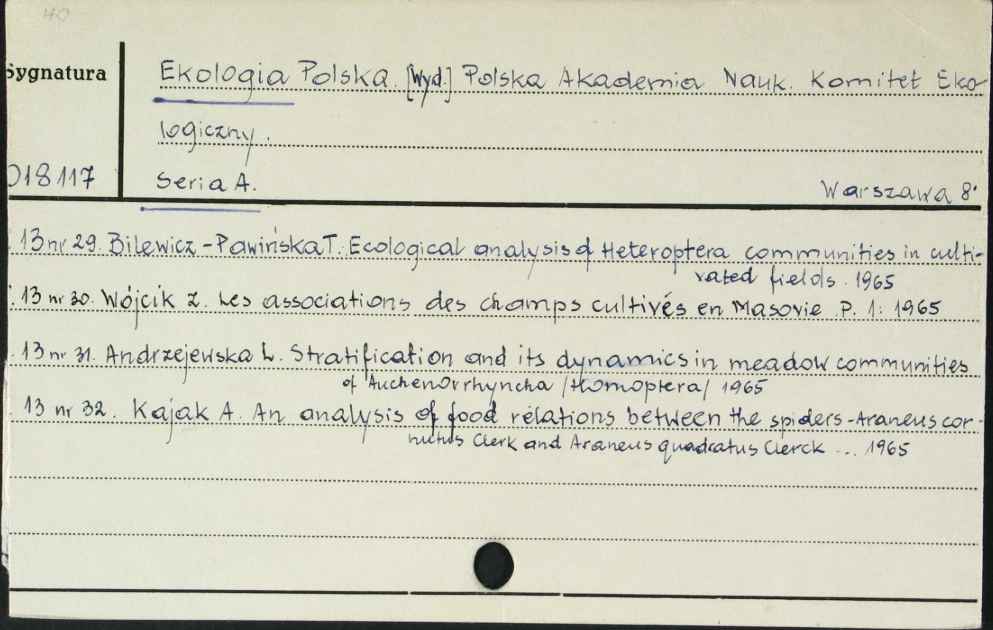 40
Sygnatura
Ekologia Polska. [Wyd.] Polska Akademia Nauk. Komitet Eko-
logiczny.
018117
Seria A.
Warszawa 8°
13 nr 29. Bilewicz-Pawińska T. Ecological analysis of Heteroptera communities in culti-
vated fields. 1965
13 nr 30. Wójcik Z. Les associations des champs cultivés en Masovie. P. 1: 1965
13 nr 31. Andrzejewska L. Stratification and its dynamics in meadow communities
of Auchenorrhyncha /Homoptera/ 1965
13 nr 32. Kajak A. An analysis of food relations between the spiders-Araneus cor-
nutus Clerk and Araneus quadratus Clerck ... 1965